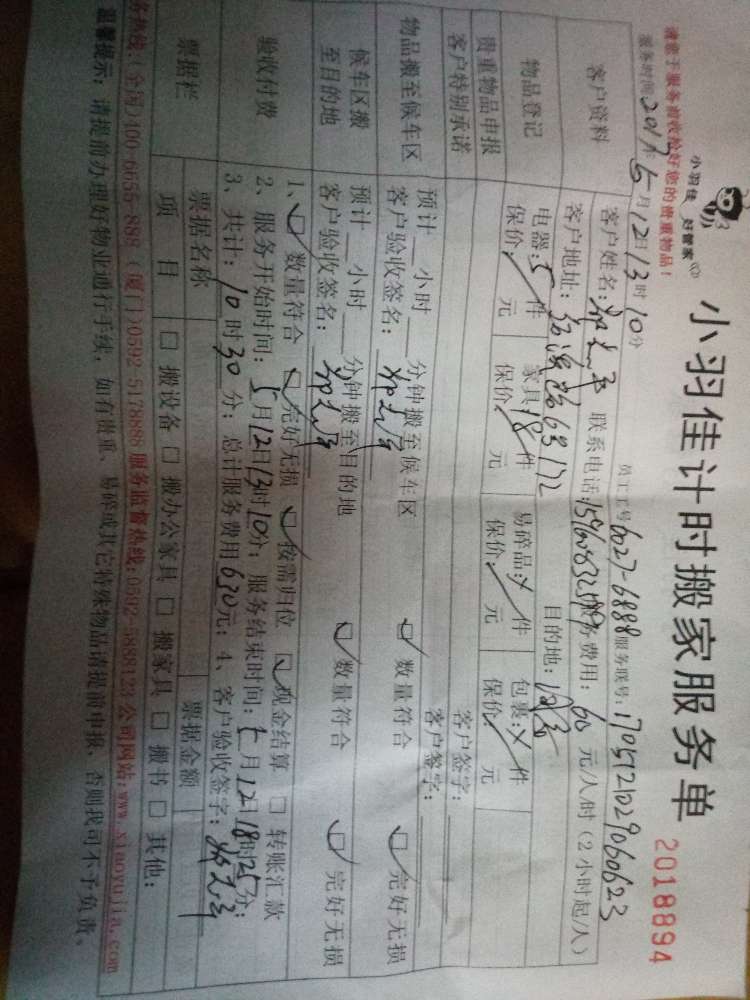 小羽佳计时搬家服务单
2018894
小羽佳 好管家
请您于服务前收检好您的贵重物品!
员工工号6027-6888服务联号:
服务时间2017年5月12日13时10分
客户资料
客户姓名: 联系电话: 服务费用:60元/人/时(2小时起/人)
客户地址: 目的地:
物品登记
电器:5件 家具18件 易碎品: 件 包裹: 件
保价: 元 保价: 元 保价: 元 保价: 元
贵重物品申报 客户签字:
客户特别承诺 客户签字:
物品搬至候车区
预计 小时 分钟搬至候车区
客户验收签名: 数量符合 完好无损
候车区搬至目的地
预计 小时 分钟搬至目的地
客户验收签名: 数量符合 完好无损
验收付费
1、 数量符合 完好无损 按需归位 现金结算 转账汇款
2、服务开始时间:5月12日13时10分;服务结束时间:5月12日18时25分;
3、共计:10时30分;总计服务费用630元;4、客户验收签字:
票据栏
票据名称 票据金额
项目 搬设备 搬办公家具 搬家具 搬书 其他:
务热线:(全国)400-6655-888 (厦门)0592-5178888 服务监督热线:0592-5888123 公司网站:www.xiaoyujia.com
温馨提示:请提前办理好物业通行手续,如有贵重、易碎或其它特殊物品请提前申报,否则我司不予负责。